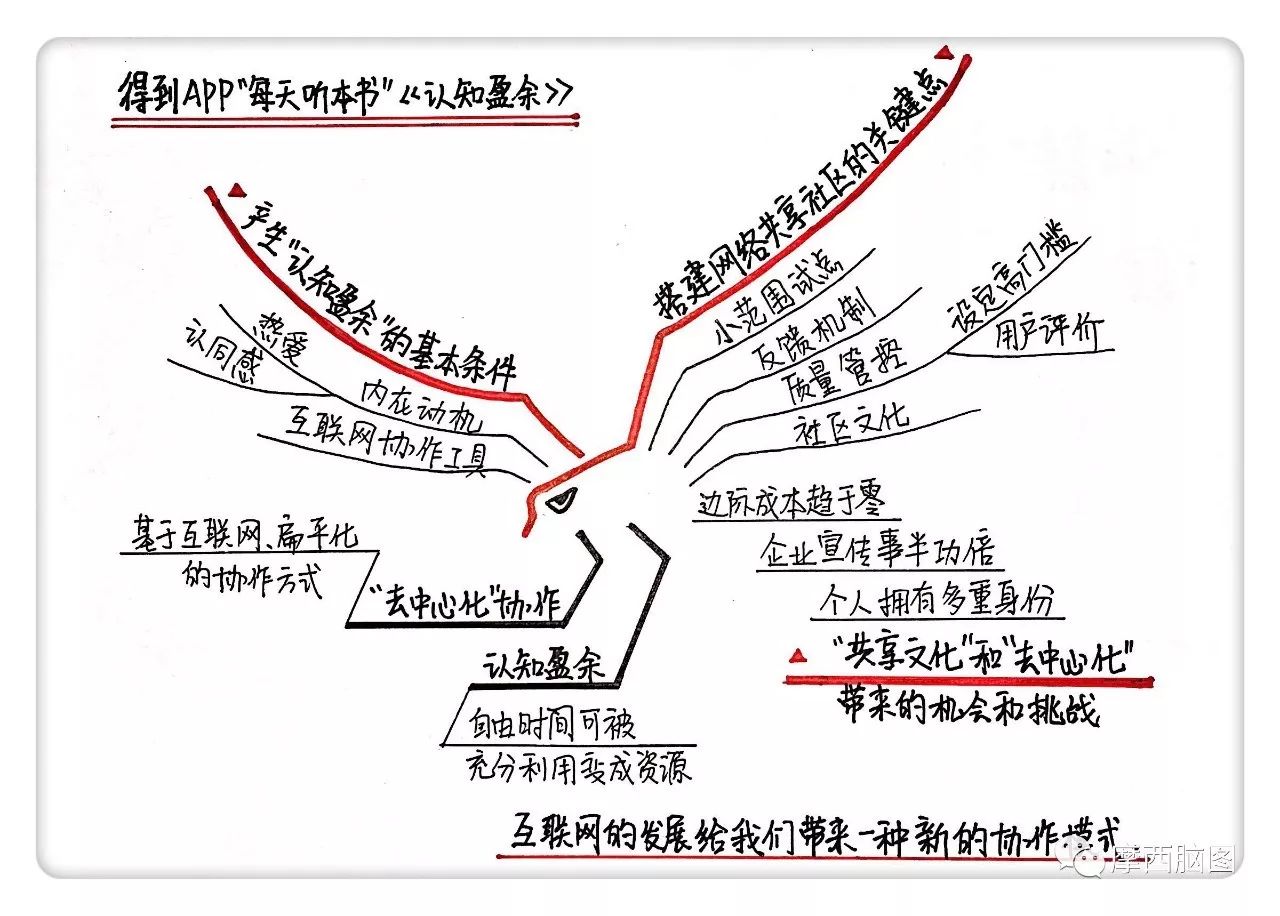 得到APP“每天听本书”《认知盈余》
产生“认知盈余”的基本条件
热爱
认同感
内在动机
互联网协作工具
搭建网络共享社区的关键点
小范围试点
反馈机制
质量管控
设定高门槛
用户评价
社区文化
基于互联网、扁平化
的协作方式
“去中心化”协作
认知盈余
自由时间可被
充分利用变成资源
边际成本趋于零
企业宣传事半功倍
个人拥有多重身份
“共享文化”和“去中心化”
带来的机会和挑战
互联网的发展给我们带来一种新的协作模式
摩西脑图